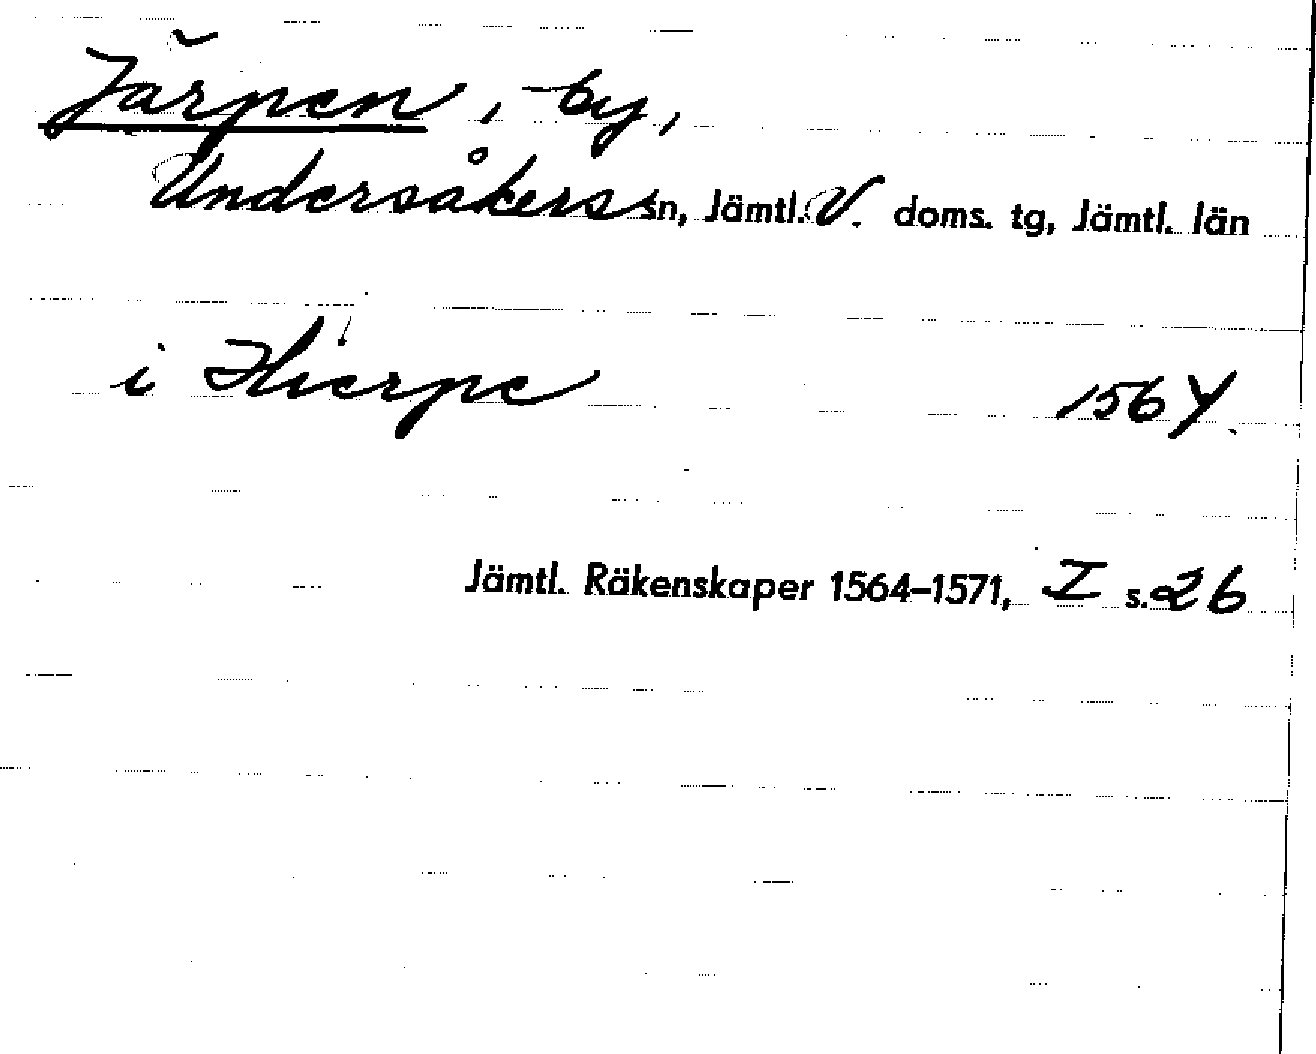 Järpen, by,
Undersåkers sn, Jämtl. V. doms. tg, Jämtl. län
i Hierpe 1564.
Jämtl. Räkenskaper 1564-1571, I s. 26